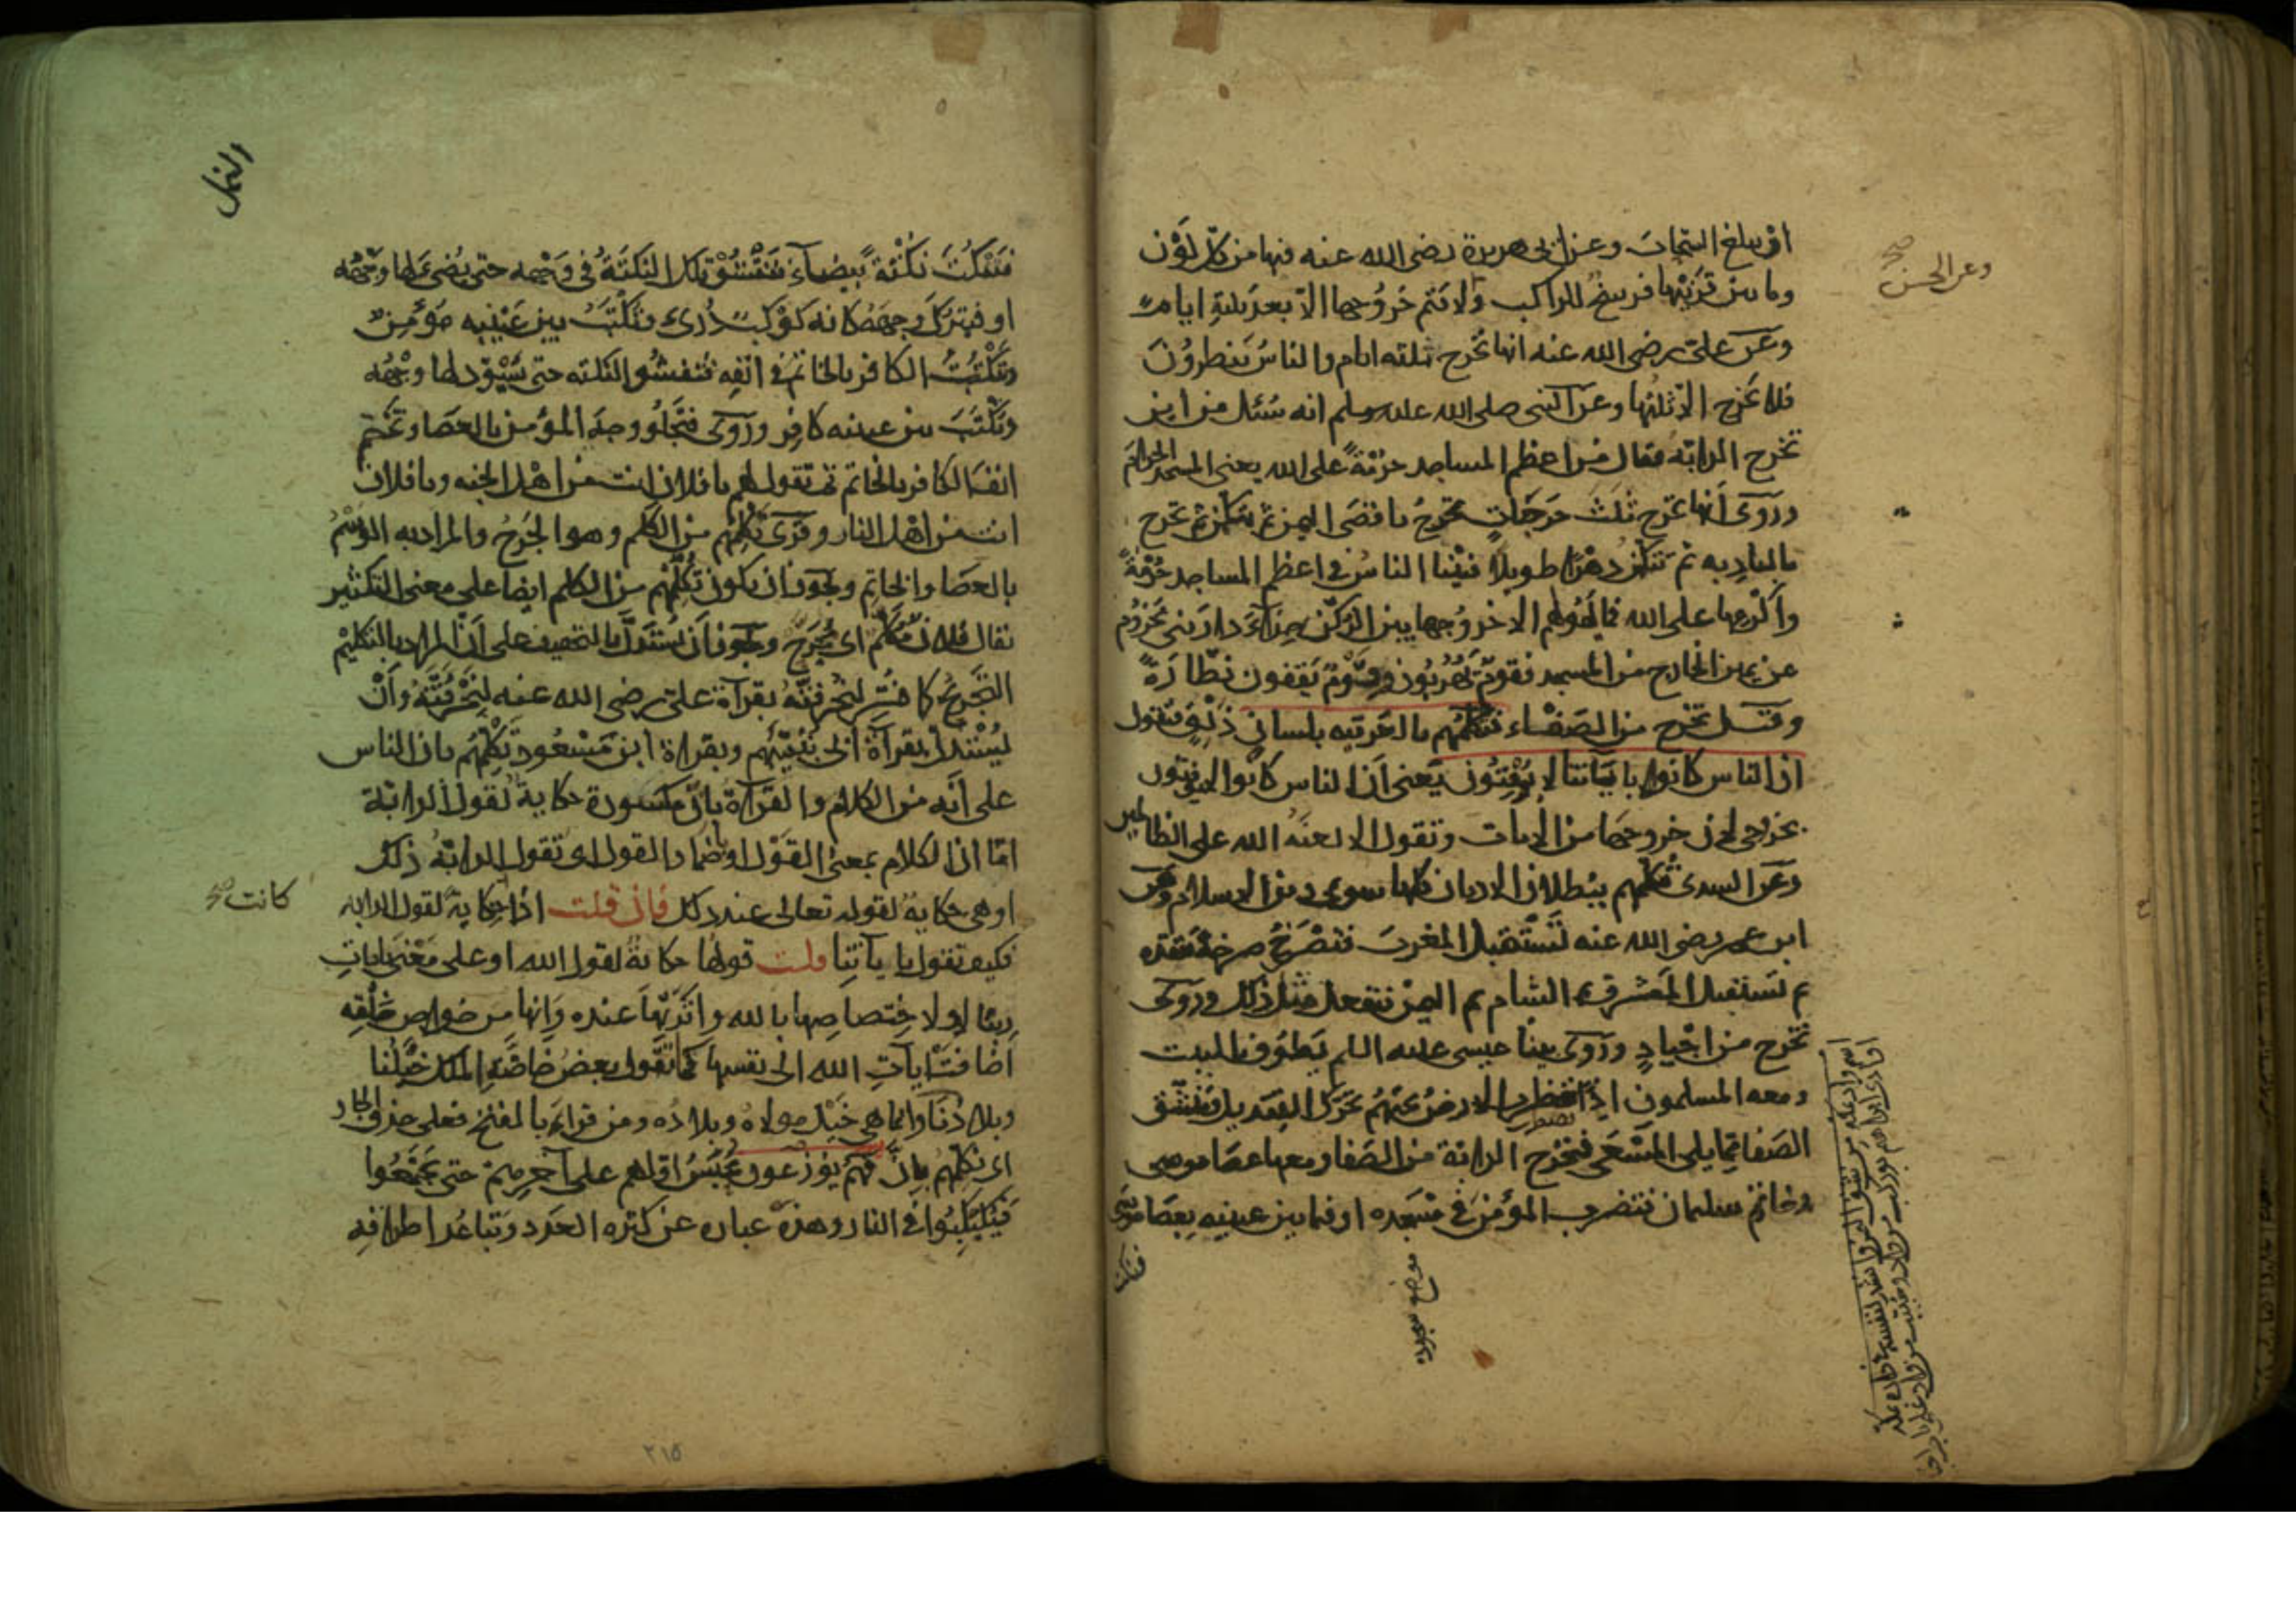 او يبلغ السحاب وعن ابى هريرة رضى الله عنه فيها من كل لون
وما بين قرنيها فرسخ للراكب ولا يتم خروجها الا بعد ثلثة ايام
وعن على رضى الله عنه انها تخرج ثلثة ايام والناس ينظرون
فلا تخرج الا ثلثها وعن النبى صلى الله عليه وسلم انه سئل من اين
تخرج الدابة فقال من اعظم المساجد حرمة على الله يعنى المسجد الحرام
وروى انها تخرج ثلث خرجات تخرج باقصى اليمن ثم تتكمن ثم تخرج
بالبادية ثم تتكمن دهرا طويلا فبينا الناس فى اعظم المساجد حرمة
واكرمها على الله فما يهولهم الا خروجها بين الركن حذاء دار بنى مخزوم
عن يمين الخارج من المسجد فقوم يهربون وقوم يقفون نظارة
وقيل تخرج من الصفاء تكلمهم بالعربية بلسان ذلق فتقول
ان الناس كانوا باياتنا لا يوقنون يعنى ان الناس كانوا لا يوقنون
بخروجى لان خروجها من الايات وتقول الا لعنة الله على الظالمين
وعن السدى تكلمهم ببطلان الاديان كلها سوى دين الاسلام وعن
ابن عمر رضى الله عنه تستقبل المغرب فتصرخ صرخة تنفذه
ثم تستقبل المشرق ثم الشام ثم اليمن فتفعل مثل ذلك وروى
تخرج من اجياد وروى بينا عيسى عليه السلم يطوف بالبيت
ومعه المسلمون اذ تضطرب الارض تحتهم تحرك القنديل فينشق
الصفا مما يلى المسعى فتخرج الدابة من الصفا ومعها عصا موسى
وخاتم سليمان فتضرب المؤمن فى مسجده او فيما بين عينيه بعصا موسى
فتنكت
وعن الحسن صح
موضع سجوده
النمل
فتنكت نكتة بيضاء فتفشو تلك النكتة فى وجهه حتى يضىء لها وجهه
او فيترك وجهه كانه كوكب درى وتكتب بين عينيه مؤمن
وتنكت الكافر بالخاتم فى انفه فتفشو النكتة حتى يسود لها وجهه
وتكتب بين عينيه كافر وروى فتجلو وجه المؤمن بالعصا وتختم
انف الكافر بالخاتم ثم تقول لهم يا فلان انت من اهل الجنة ويا فلان
انت من اهل النار وقرى تكلمهم من الكلم وهو الجرح والمراد به الوسم
بالعصا والخاتم ويجوز ان يكون تكلمهم من الكلم ايضا على معنى التكثير
يقال فلان مكلم اى مجرح ويجوز ان يستدل بالتخفيف على ان المراد بالتكليم
التجريح كما فسر لنحرقنه بقراءة على رضى الله عنه لنحرقنه وان
يستدل بقراءة ابى تنبئهم وبقراءة ابن مسعود تكلمهم بان الناس
على انه من الكلام والقراءة بان مكسورة حكاية لقول الدابة
اما ان الكلام بمعنى القول او باضمار القول اى تقول الدابة ذلك
او هى حكاية لقوله تعالى عند ذلك فان قلت اذا حكاية لقول الدابة
كانت صح
فكيف تقول باياتنا قلت قولها حكاية لقول الله او على معنى بايات
ربنا او لاختصاصها بالله واثرتها عنده وانها من خواص خلقه
اضافت ايات الله الى نفسها كما تقول بعض خاصة الملك خيلنا
وبلادنا وانما هى خيل مولاه وبلاده ومن قراء بالفتح فعلى حذف الجار
اى تكلمهم بان فهم يوزعون يحبس اولهم على اخرهم حتى يجتمعوا
فيكبكبوا فى النار وهذه عبارة عن كثرة العدد وتباعد اطرافه
٢١٥